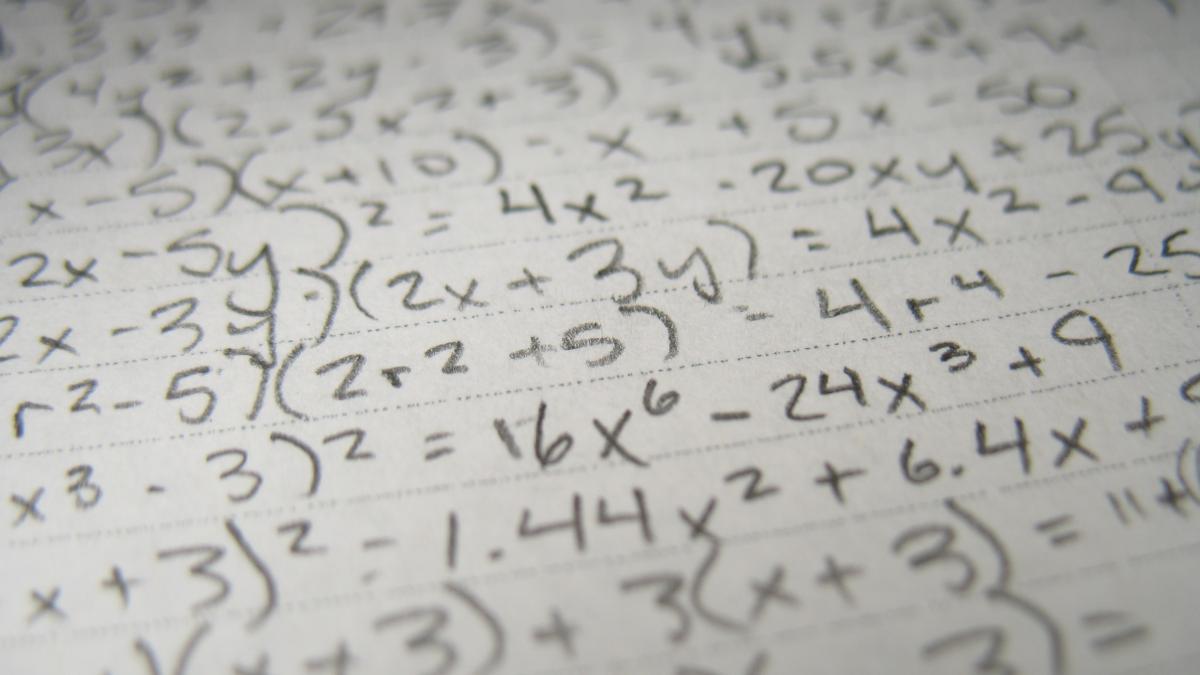 (4y² + 2y - 3) = 4y⁴
3x)(2 - 5x² + 3) =
x - 5)(x + 10) = x² + 5x - 50
2x - 5y)² = 4x² - 20xy + 25y
2x - 3y)(2x + 3y) = 4x² - 9y
r² - 5)(2r² + 5) = 4r⁴ - 25
x³ - 3)² = 16x⁶ - 24x³ + 9
x + 3)² = 1.44x² + 6.4x +
(x + 3) + 3(x + 3) = 11 + (
3) =